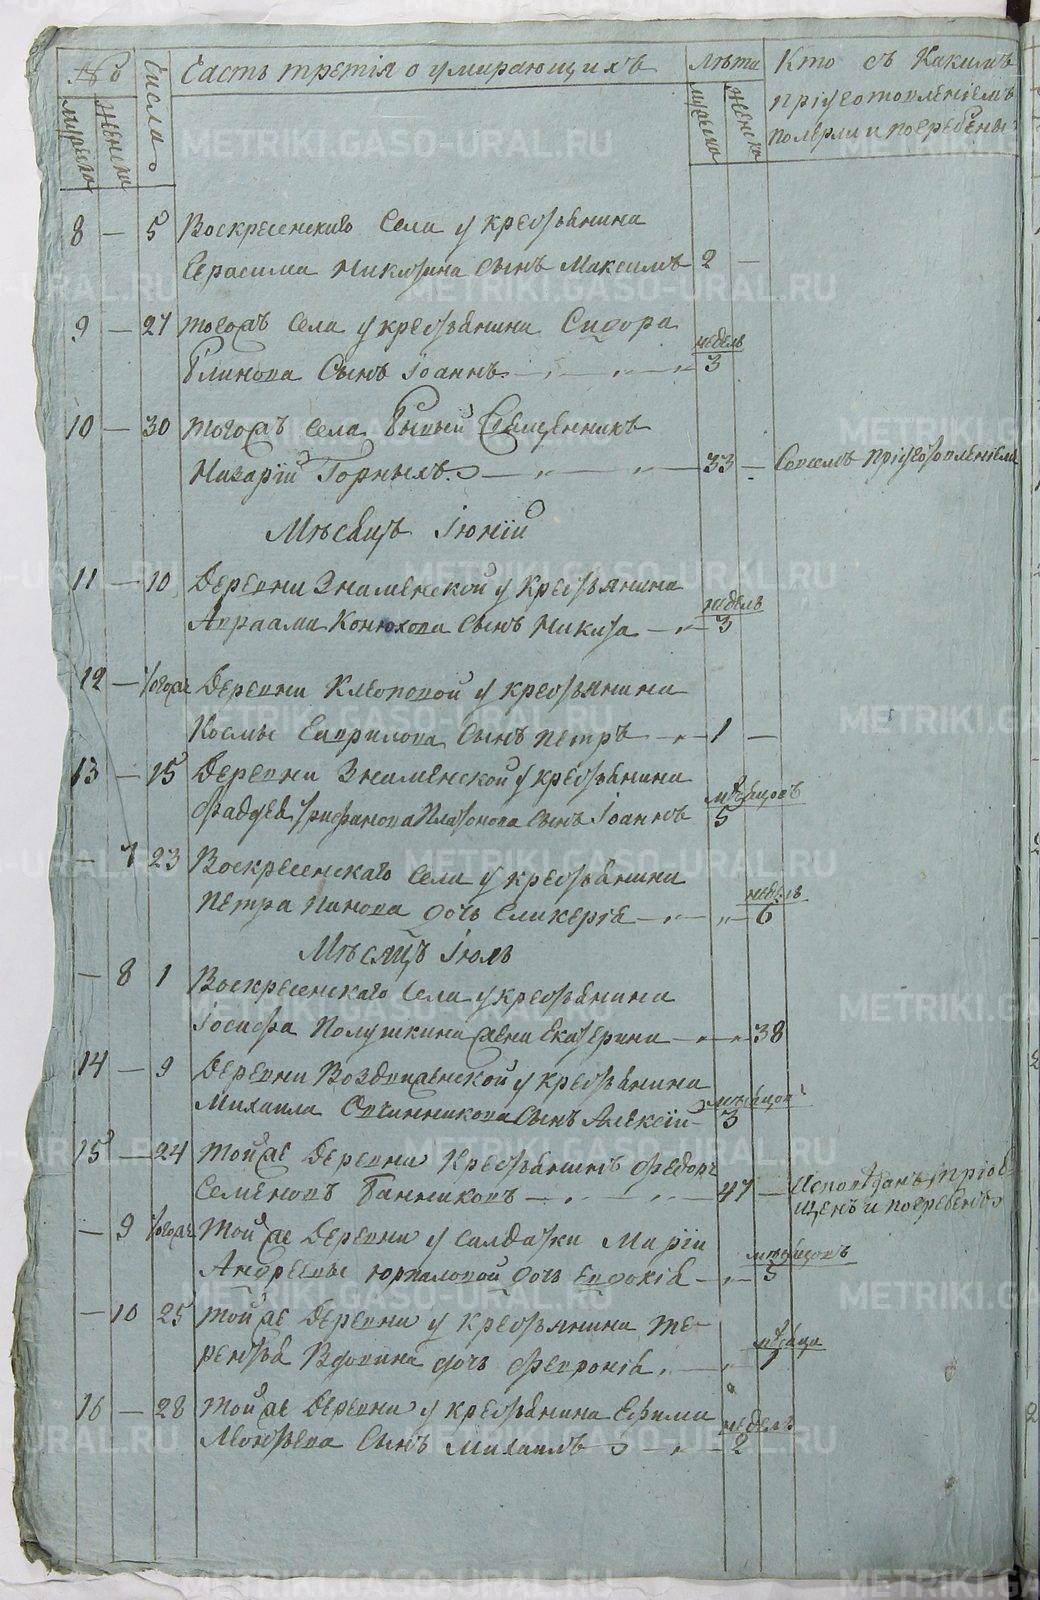 № Числа Часть третія о умирающихъ лѣта Кто съ Какимъ
мужеска женска мужеска женска пріуготовленіемъ
померли и погребены
8 — 5 Воскресенскаго Села у крестьянина
Герасима Никитина сынъ Максимъ 2 —
9 — 27 тогожъ Села у крестьянина Сидора недель
Блинова Сынъ Іоаннъ 3
10 — 30 тогожъ села бывый Священникъ
Назарій Горныхъ 33 — Совсемъ пріуготовленіемъ
Мѣсяцъ Іюній
11 — 10 Деревни Знаменской у Крестьянина недель
Авраама Конюхова Сынъ Никита 3
12 — тогожъ Деревни Клеоповой у крестьянина
Космы Гаврилова Сынъ петръ 1 —
13 — 15 Деревни Знаменской у крестьянина мѣсяцовъ
Фаддея Трифанова Платонова Сынъ Іоаннъ 5
— 7 23 Воскресенскаго села у крестьянина недель
петра Панова дочь Гликерія 6
Мѣсяцъ Іюль
— 8 1 Воскресенскаго Села у крестьянина
Іосифа Полушкина жена Екатерина 38
14 — 9 Деревни Воздвиженской у крестьянина мѣсяцов
Михаила Овчинникова Сынъ Алексій 3
15 — 24 тойже Деревни Крестьянинъ Федоръ
Семеновъ Банниковъ 47 — Исповѣданъ пріоб
щенъ и погребенъ
— 9 тогожъ Тойже Деревни у салдатки Маріи мѣсяцовъ
Андреевы Юрпаловой дочь Евдокія 5
— 10 25 тойже Деревни у Крестьянина Те- мѣсяца
рентья Вдовина дочь Февронія 1
16 — 28 тойже Деревни у крестьянина Ефима недель
Леонтьева Сынъ Михаилъ 2
METRIKI.GASO-URAL.RU